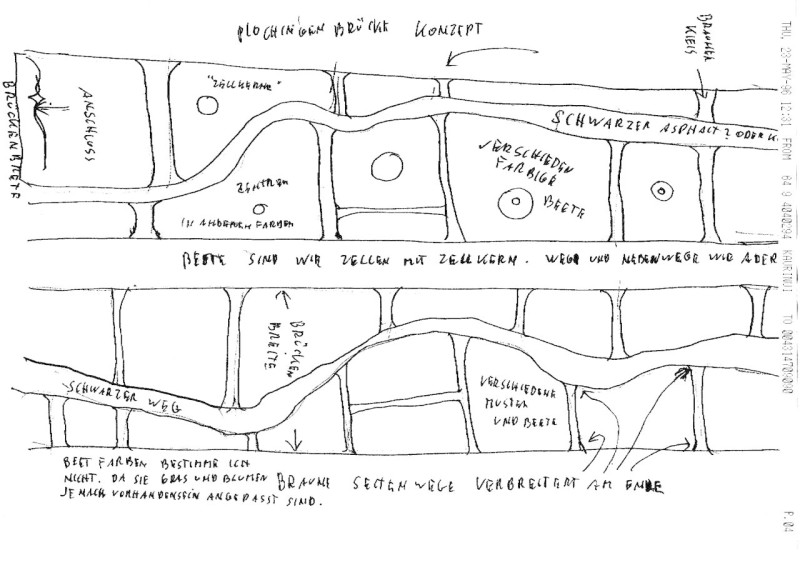 PLOCHINGEN BRÜCKE KONZEPT
BRAUNER
KIES
"ZELLKERNE"
ANSCHLUSS
BRÜCKENBREITE
SCHWARZER ASPHALT? ODER K
VERSCHIEDEN
FARBIGE
BEETE
ZENTREN
IN ANDEREN FARBEN
BEETE SIND WIE ZELLEN MIT ZELLKERN. WEGE UND NEBENWEGE WIE ADER
BRÜCKEN
BREITE
SCHWARZER WEG
VERSCHIEDENE
MUSTER
UND BEETE
BEET FARBEN BESTIMME ICH
NICHT. DA SIE GRAS UND BLUMEN
JE NACH VORHANDENSEIN ANGEPASST SIND.
BRAUNE SEITENWEGE VERBREITERT AM ENDE
THU, 23-MAY-96 12:31 FROM 64 9 4040294 KAURINUI TO 004314709090 P.04